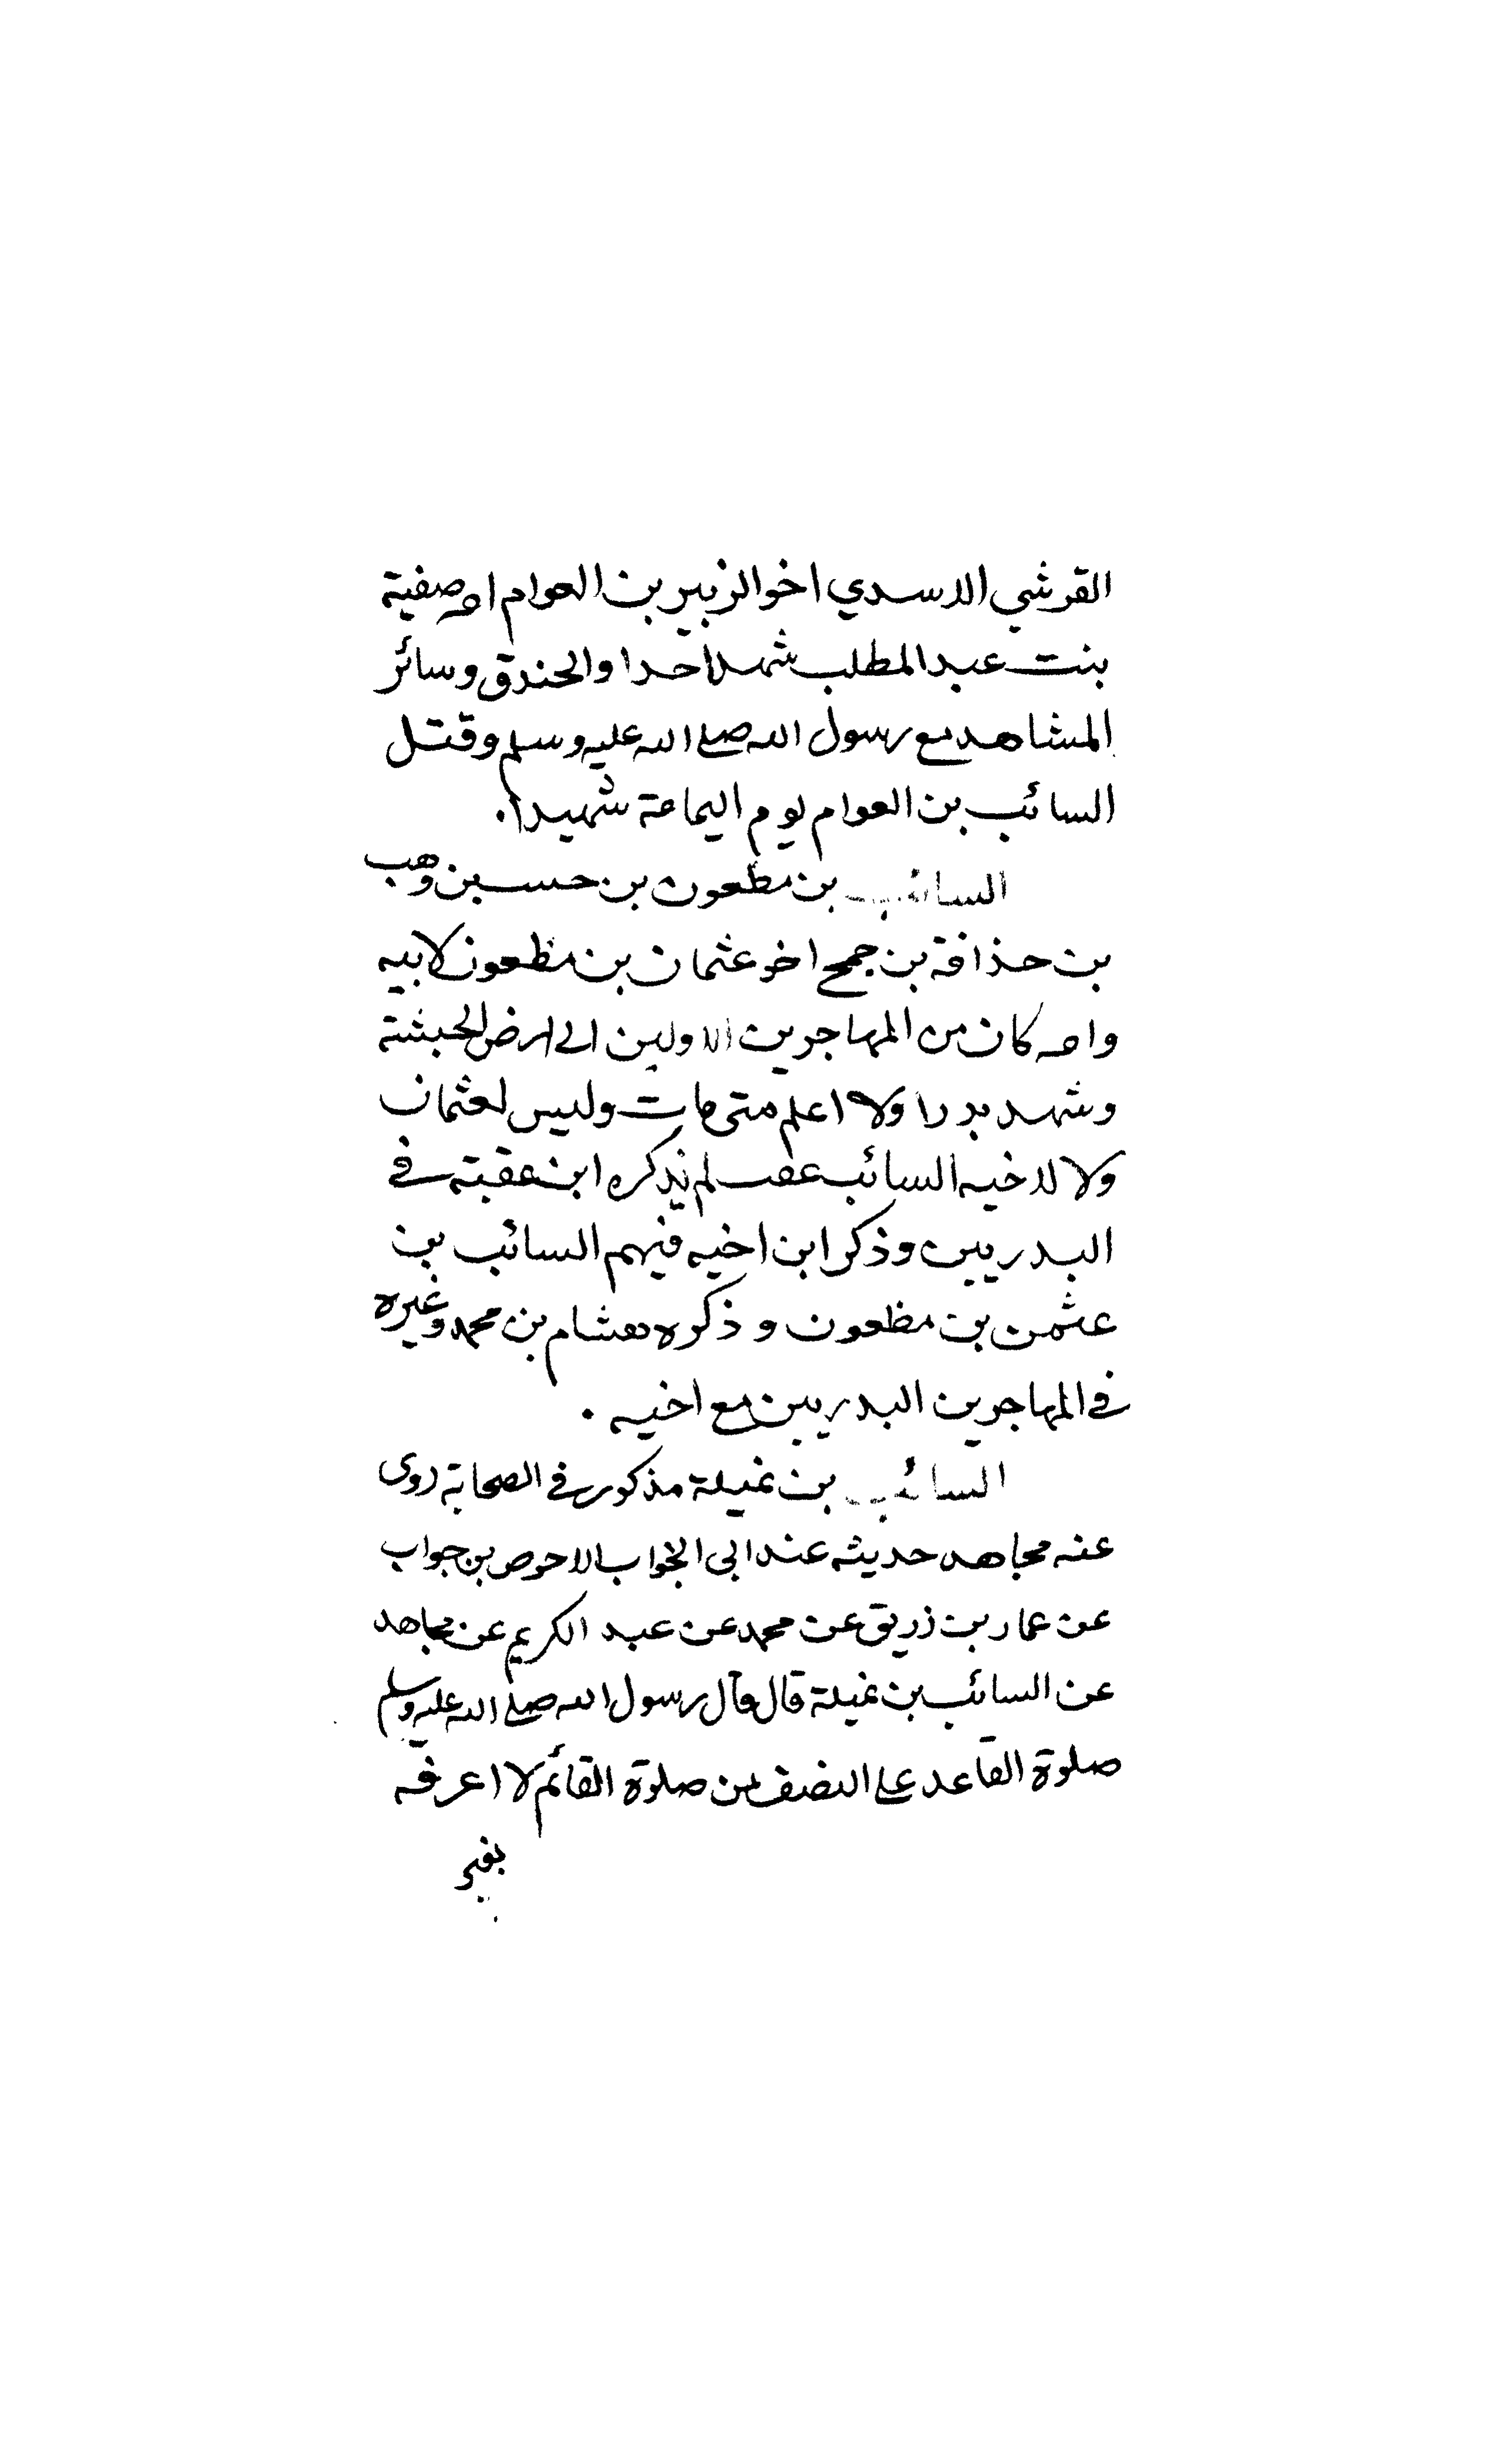 القرشي الاسدي اخو الزبير بن العوام امه صفية
بنت عبد المطلب شهد احدا والخندق وسائر
المشاهد مع رسول الله صلى الله عليه وسلم وقتل
السائب بن العوام يوم اليمامة شهيدا.
السائب بن مظعون بن حسين وهب
بن حذافة بن جمح اخو عثمان بن مظعون لابيه
وامه كان من المهاجرين الاولين الى ارض الحبشة
وشهد بدرا ولا اعلم متى مات وليس لعثمان
ولا لاخيه السائب عقب لم يذكره ابن عقبة في
البدريين وذكر ابن اخيه فيهم السائب بن
عثمن بن مظعون وذكره هشام بن محمد وغيره
في المهاجرين البدريين مع اخيه .
السائب بن نميلة مذكور في الصحابة روى
عنه مجاهد حديثه عند ابى الجواب الاحوص بن جواب
عن عمار بن زريق عن محمد عن عبد الكريم عن مجاهد
عن السائب بن نميلة قال قال رسول الله صلى الله عليه وسلم
صلوة القاعد على النصف من صلوة القائم لا اعرفه
بغير